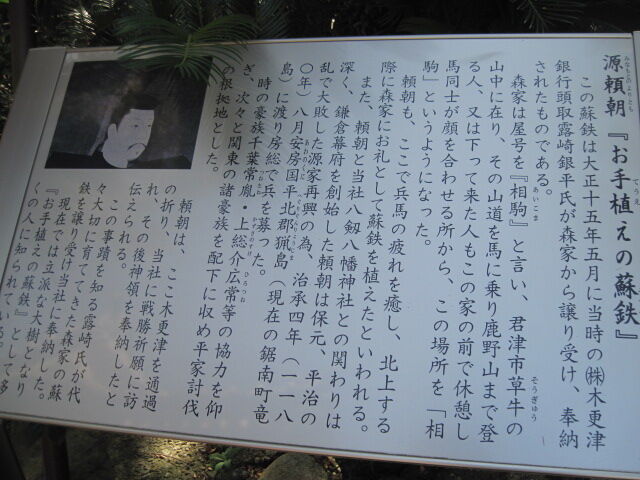 源頼朝『お手植えの蘇鉄』
みなもとのよりとも
てうえ
この蘇鉄は大正十五年五月に当時の㈱木更津
銀行頭取露崎銀平氏が森家から譲り受け、奉納
されたものである。
森家は屋号を『相駒』と言い、君津市草牛の
あいこま
そうぎゅう
山中に在り、その山道を馬に乗り鹿野山まで登
る人、又は下って来た人もこの家の前で休憩し
馬同士が顔を合わせる所から、この場所を「相
駒」というようになった。
頼朝も、ここで兵馬の疲れを癒し、北上する
際に森家にお礼として蘇鉄を植えたといわれる。
また、頼朝と当社八剱八幡神社との関わりは
深く、鎌倉幕府を創始した頼朝は保元、平治の
乱で大敗した源家再興の為、治承四年（一一八
〇年）八月安房国平北郡猟島（現在の鋸南町竜
島）に渡り房総で兵を募った。
時の豪族千葉常胤・上総介広常等の協力を仰
つねたね
ひろつね
ぎ、次々と関東の諸豪族を配下に収め平家討伐
の根拠地とした。
頼朝は、ここ木更津を通過
の折り、当社に戦勝祈願に訪
れ、その後神領を奉納したと
伝えられる。
この事蹟を知る露崎氏が代
々大切に育ててきた森家の蘇
鉄を譲り受け当社に奉納した。
現在では立派な大樹となり
『お手植えの蘇鉄』として多
くの人に知られている。